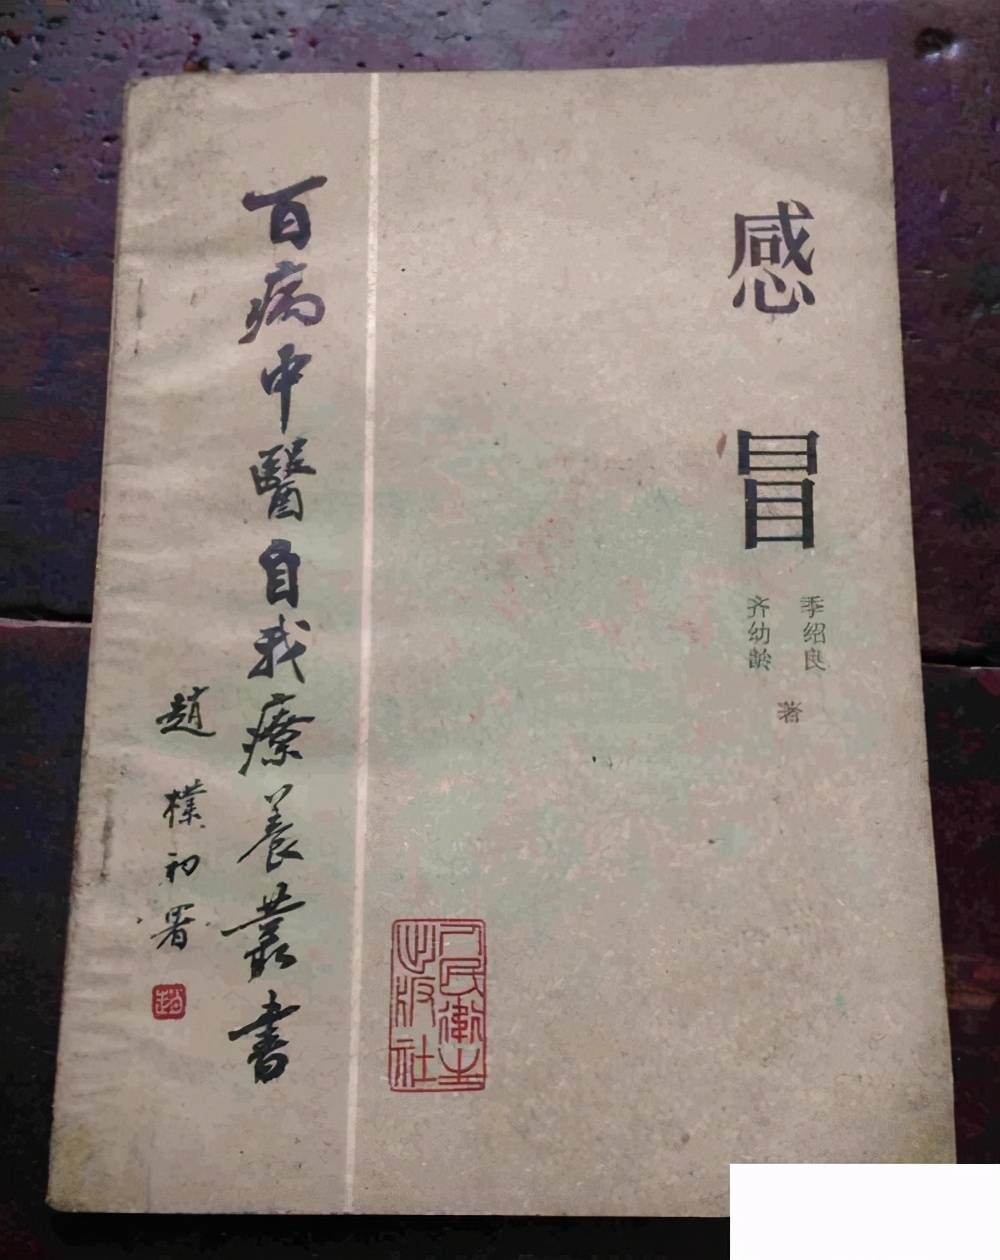 感冒
季绍良
齐幼龄
著
百病中醫自我療养叢書
趙樸初署
趙
人民衛生
出版社